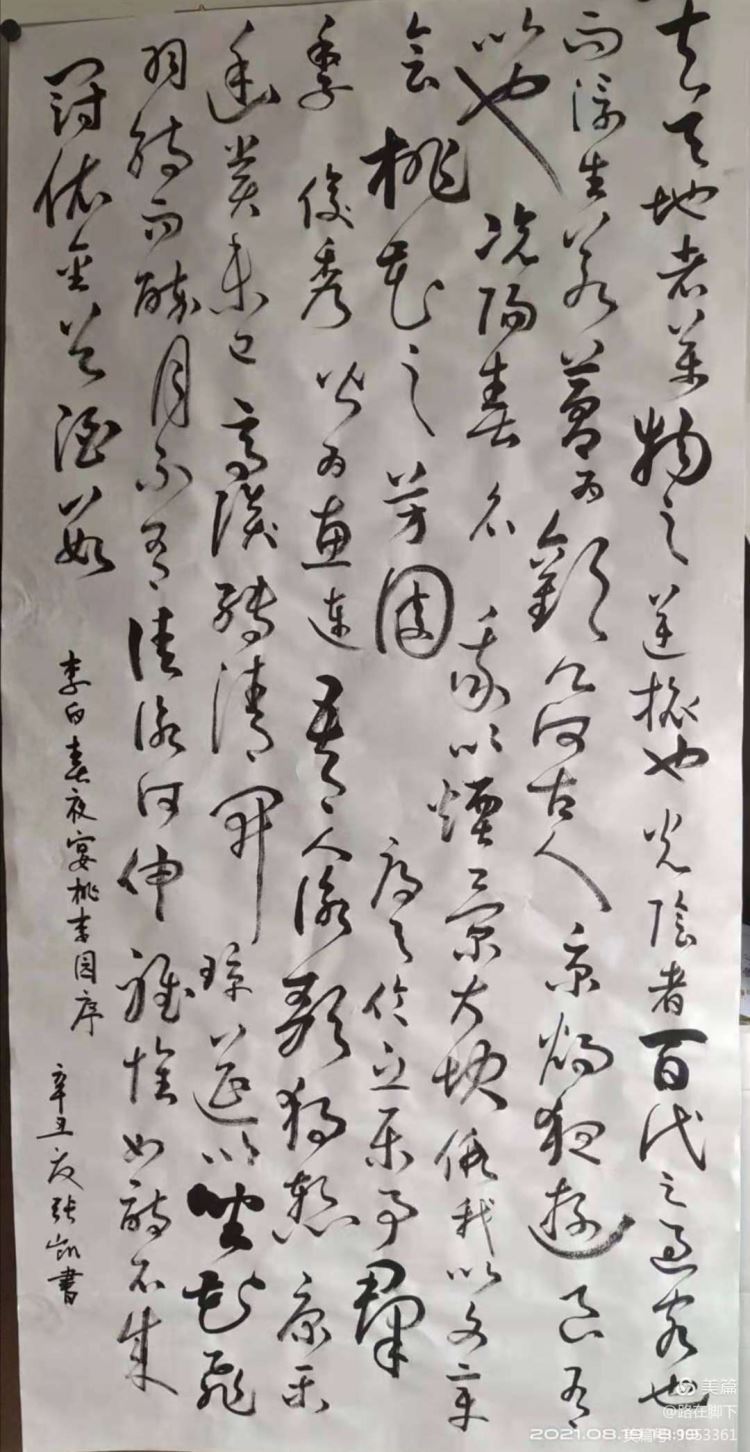 夫天地者萬物之逆旅也光陰者百代之過客也
而浮生若夢為歡幾何古人秉燭夜遊良有
以也況陽春召我以煙景大塊假我以文章
會桃花之芳園序天倫之樂事群
季俊秀皆為惠連吾人詠歌獨慚康樂
幽賞未已高談轉清開瓊筵以坐花飛
羽觴而醉月不有佳詠何伸雅懷如詩不成
罰依金谷酒數
李白春夜宴桃李园序
辛丑夏张凯書
美篇
@路在脚下
2021.08.19